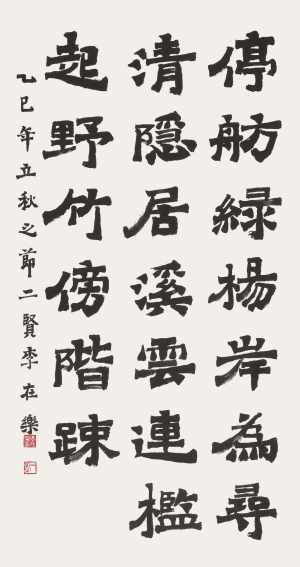 停舫緑楊岸為尋
清隱居溪雲連檻
起野竹傍階踈
乙巳年五秋之節二賢李在樂